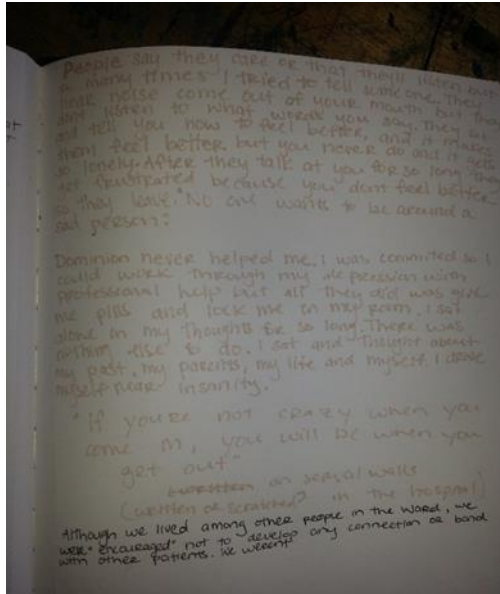 People say they care or that they'll listen but
so many times I tried to tell someone. They
hear noise come out of your mouth but they
don't listen to what words you say. They
and tell you how to feel better, and it makes
them feel better but you never do and it gets
so lonely. After they talk at you for so long they
get frustrated because you dont feel better
so they leave. "No one wants to be around a
sad person."
Dominion never helped me. I was commited so I
could work through my depression with
professional help but all they did was give
me pills and lock me in my room. I sat
alone in my thoughts for so long. There was
nothing else to do. I sat and thought about
my past, my parents, my life and myself. I drove
myself near insanity.
"If you're not crazy when you
come in, you will be when you
get out"
written on several walls
(written or scratched in the hospital)
Although we lived among other people in the ward, we
were "encouraged" not to develop any connection or bond
with other patients. We weren't